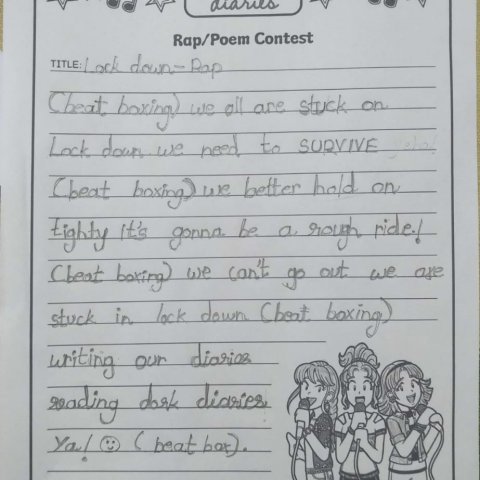 diaries
Rap/Poem Contest
TITLE: Lock down-Rap
(beat boxing) we all are stuck on
Lock down we need to SURVIVE
(beat boxing) we better hold on
tighty It's gonna be a rough ride!
(beat boxing) we can't go out we are
stuck in lock down (beat boxing)
writing our diaries
reading dork diaries
Ya! ☺ (beat box).